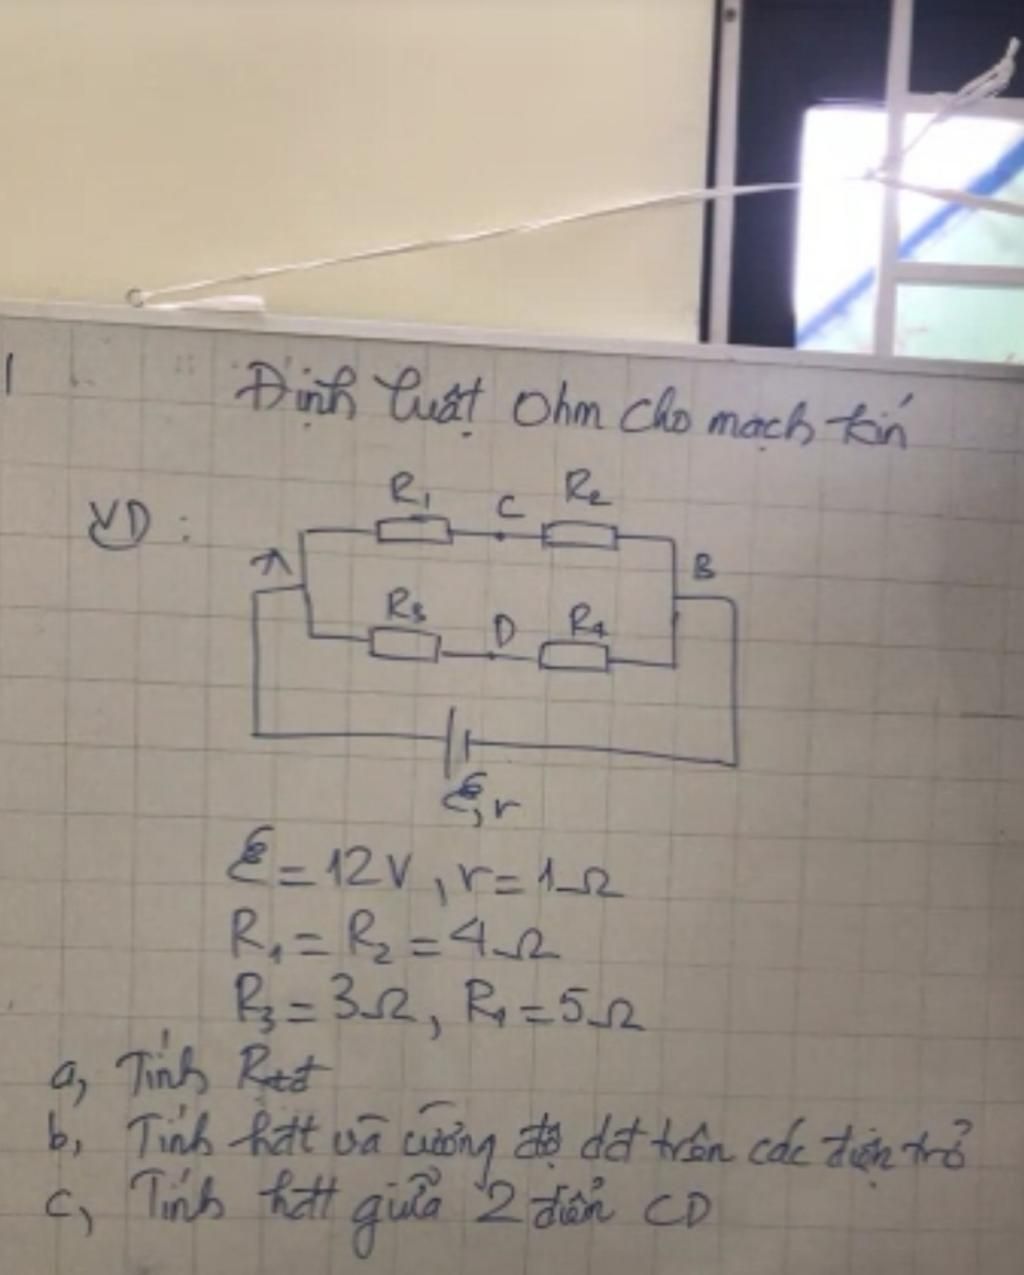 Định luật Ohm cho mạch kín
VD:
R₁ C R₂
A B
R₃ D R₄
ℰ, r
ℰ = 12V, r = 1Ω
R₁ = R₂ = 4Ω
R₃ = 3Ω, R₄ = 5Ω
a, Tính Rtđ
b, Tính hđt và cường độ dđ trên các điện trở
c, Tính hđt giữa 2 điểm CD